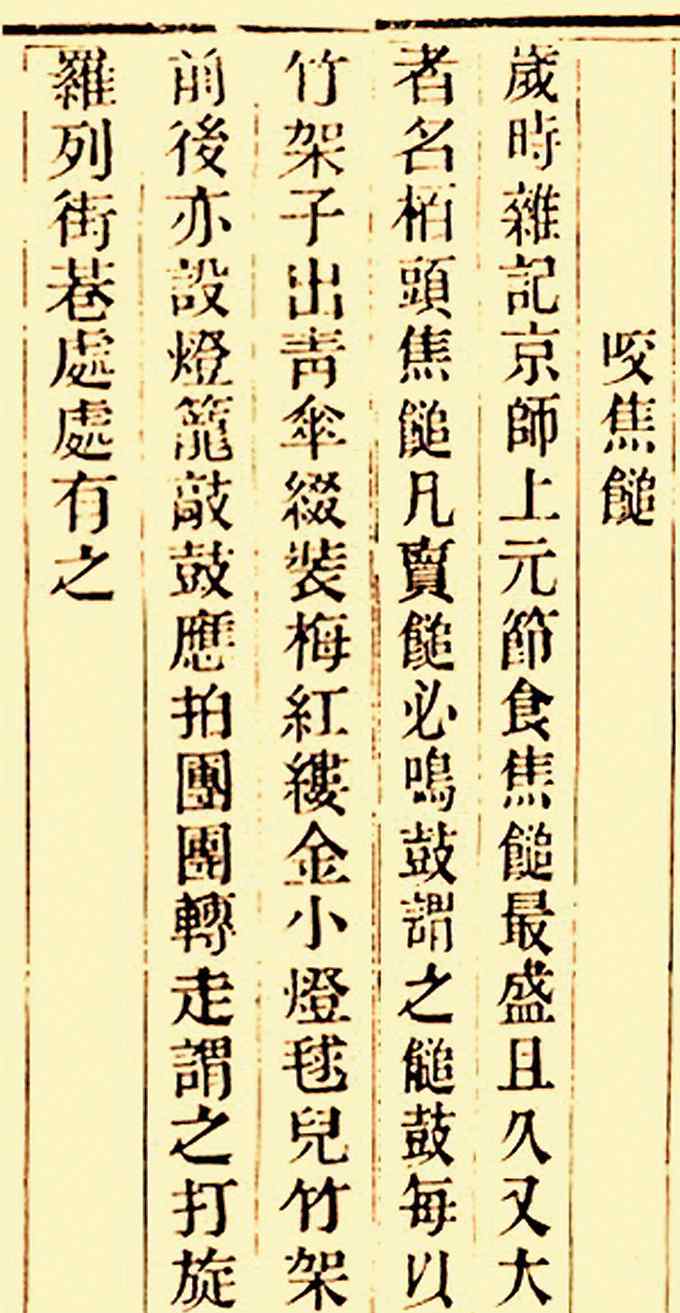 咬焦䭔
歲時雜記京師上元節食焦䭔最盛且久又大
者名柏頭焦䭔凡賣䭔必鳴鼓謂之䭔鼓每以
竹架子出靑傘綴裝梅紅縷金小燈毬兒竹架
前後亦設燈籠敲鼓應拍團團轉走謂之打旋
羅列街巷處處有之